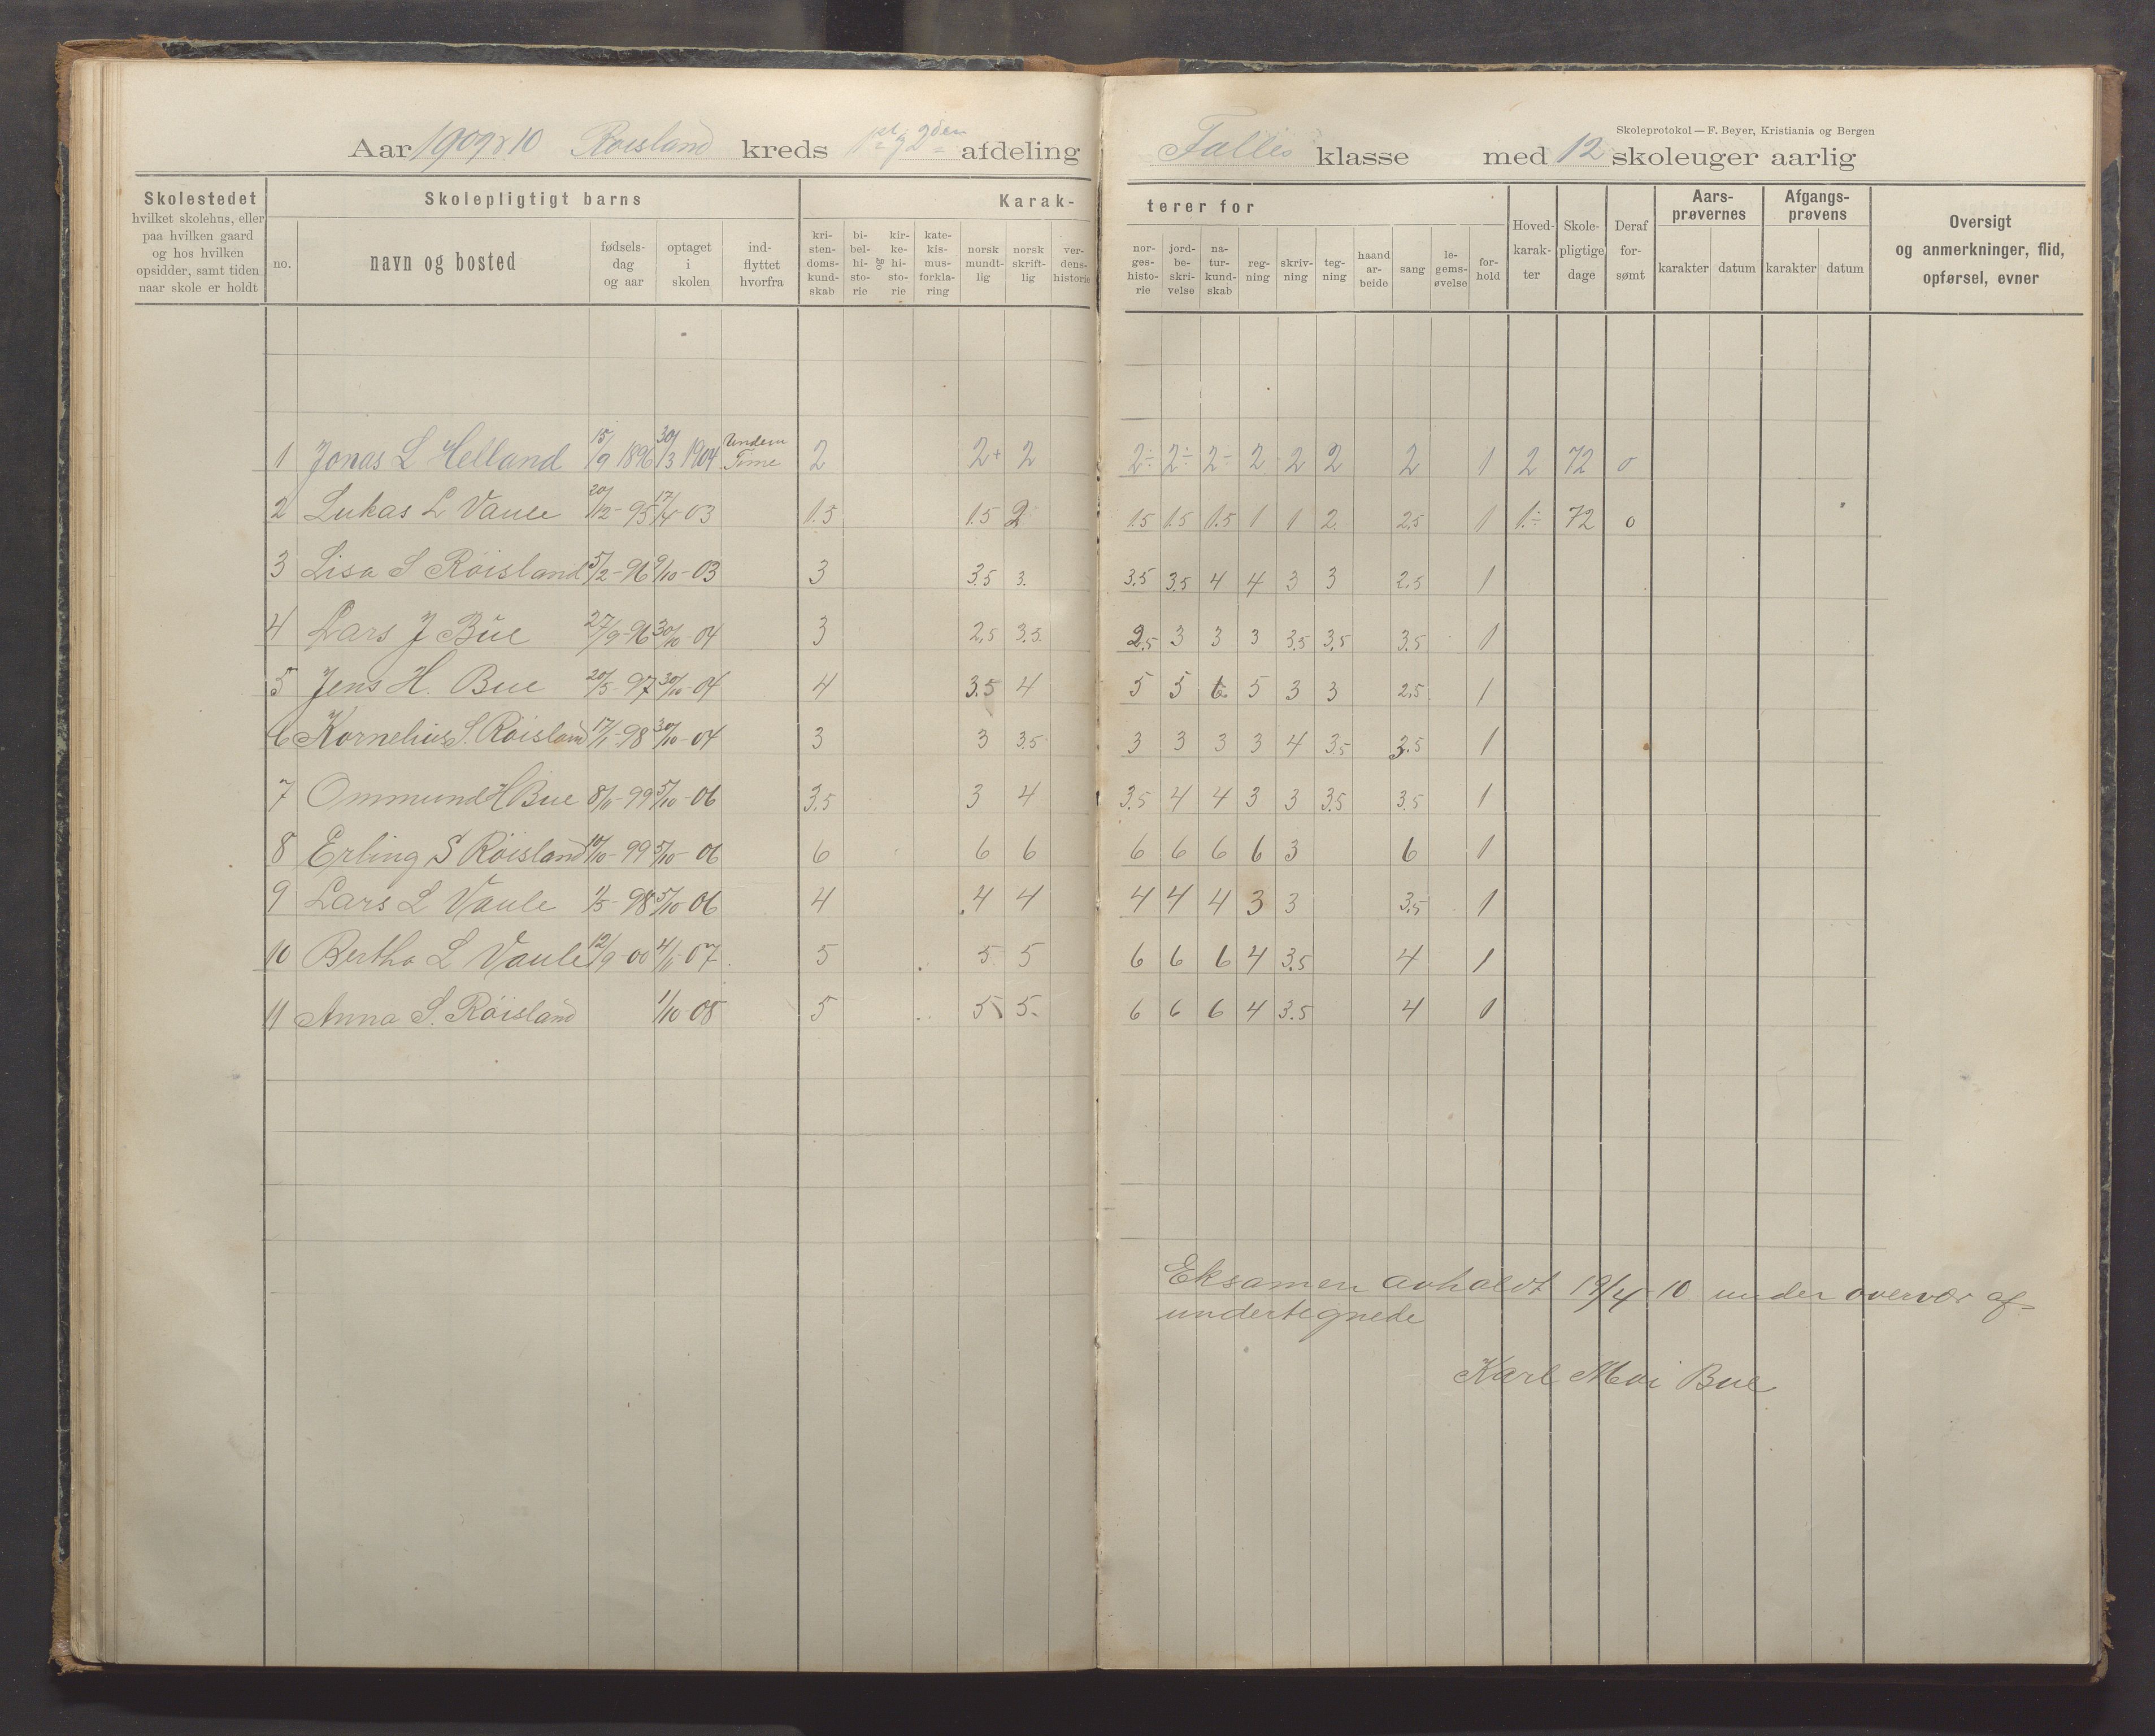 Skoleprotokol — F. Beyer, Kristiania og Bergen
Aar 1909 & 10 Roisland kreds 1ste og 2den afdeling Fælles klasse med 12 skoleuger aarlig
Skolestedet hvilket skolehus, eller paa hvilken gaard og hos hvilken opsidder, samt tiden naar skole er holdt
Skolepligtigt barns
no. navn og bosted fødsels-dag og aar optaget i skolen ind-flyttet hvorfra
Karak-terer for
kri-sten-doms-kund-skab bi-bel-hi-sto-rie og kir-ke-hi-sto-rie kate-kis-mus-forkla-ring norsk mundt-lig norsk skrift-lig ver-dens-historie
nor-ges-histo-rie jord-be-skri-velse na-tur-kund-skab reg-ning skriv-ning teg-ning haand ar-beide sang le-gems-øvelse for-hold
Hoved-karak-ter Skole-pligtige dage Deraf for-sømt
Aars-prøvernes karakter datum
Afgangs-prøvens karakter datum
Oversigt og anmerkninger, flid, opførsel, evner
1 Jonas L Helland 15/9 1896 30/3 1904 Time 2 2+ 2 2÷ 2÷ 2÷ 2 2 2 2 1 2 72 0
2 Lukas L Vaule 20/12-95 17/4-03 1.5 1.5 2 1.5 1.5 1.5 1 1 2 2.5 1 1.÷ 72 0
3 Lisa S Röisland 5/2-96 9/10-03 3 3.5 3. 3.5 3.5 4 4 3 3 2.5 1
4 Lars J Büe 27/9-96 30/10-04 3 2.5 3.5 2.5 3 3 3 3.5 3.5 3.5 1
5 Jens H. Bue 20/5-97 30/10-04 4 3.5 4 5 5 6 5 3 3 2.5 1
6 Kornelius S. Röisland 17/1-98 30/10-04 3 3 3.5 3 3 3 3 4 3.5 3.5 1
7 Ommund H Bue 8/1-99 5/10-06 3.5 3 4 3.5 4 4 3 3 3.5 3.5 1
8 Erling S Röisland 10/10-99 5/10-06 6 6 6 6 6 6 6 3 6 1
9 Lars L Vaule 1/5-98 5/10-06 4 4 4 4 4 4 3 3 3.5 1
10 Bertha L Vaule 12/9-00 4/11-07 5 5 5 6 6 6 4 3.5 4 1
11 Anna S. Röisland 1/10-08 5 5 5 6 6 6 4 3.5 4 1
Eksamen avholdt 19/4-10 under overvær af
undertegnede
Karl Moi Bue